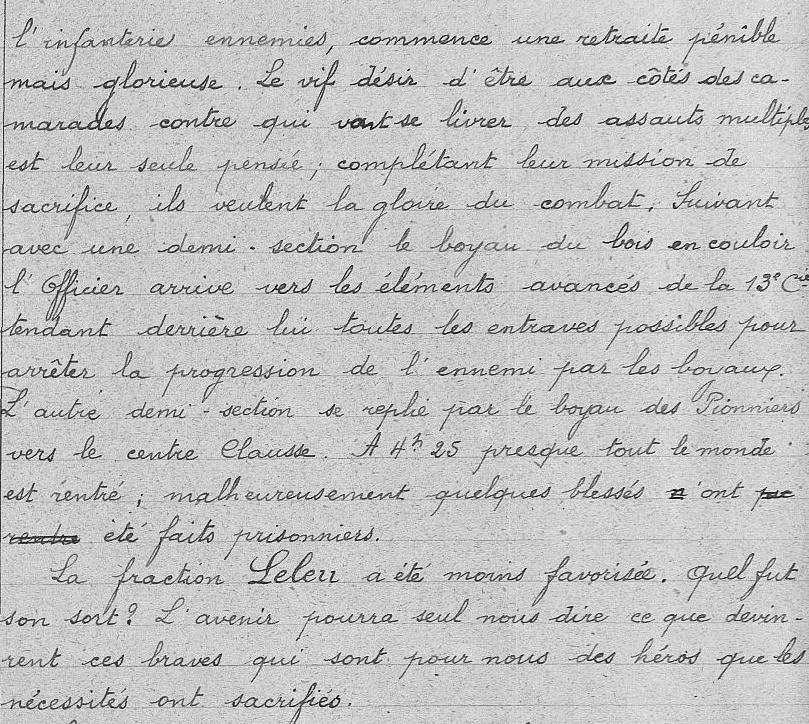 l'infanterie ennemies, commence une retraite pénible
mais glorieuse. Le vif désir d'être aux côtés des ca-
marades contre qui vont se livrer des assauts multiples
est leur seule pensée ; complétant leur mission de
sacrifice, ils veulent la gloire du combat. Suivant
avec une demi-section le boyau du bois en couloir
l'Officier arrive vers les éléments avancés de la 13e Cie
tendant derrière lui toutes les entraves possibles pour
arrêter la progression de l'ennemi par les boyaux.
L'autre demi-section se replie par le boyau des Pionniers
vers le centre Clausse. A 4h 25 presque tout le monde
est rentré ; malheureusement quelques blessés n'ont pu
rentre été faits prisonniers.
La fraction Leleu a été moins favorisée. Quel fut
son sort? L'avenir pourra seul nous dire ce que devin-
rent ces braves qui sont pour nous des héros que les
nécessités ont sacrifiés.